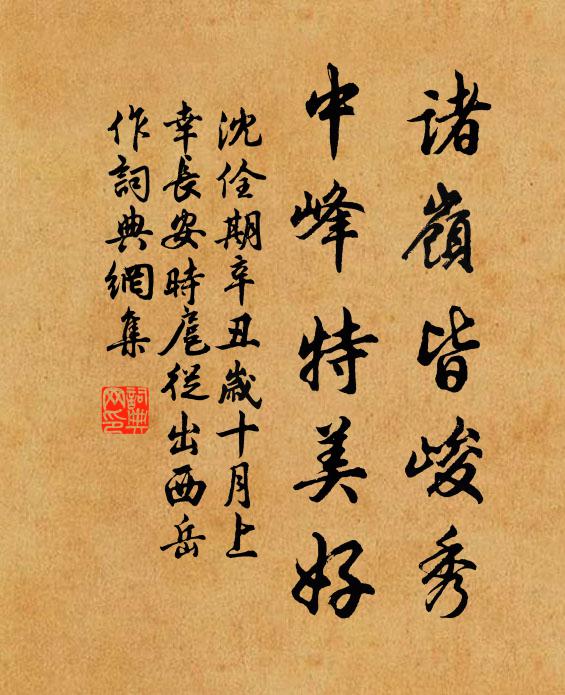 諸嶺皆峻秀
中峰特美好
沈佺期辛丑歲十月上
幸長安時扈從出西岳
作詞典網集
詞典网印